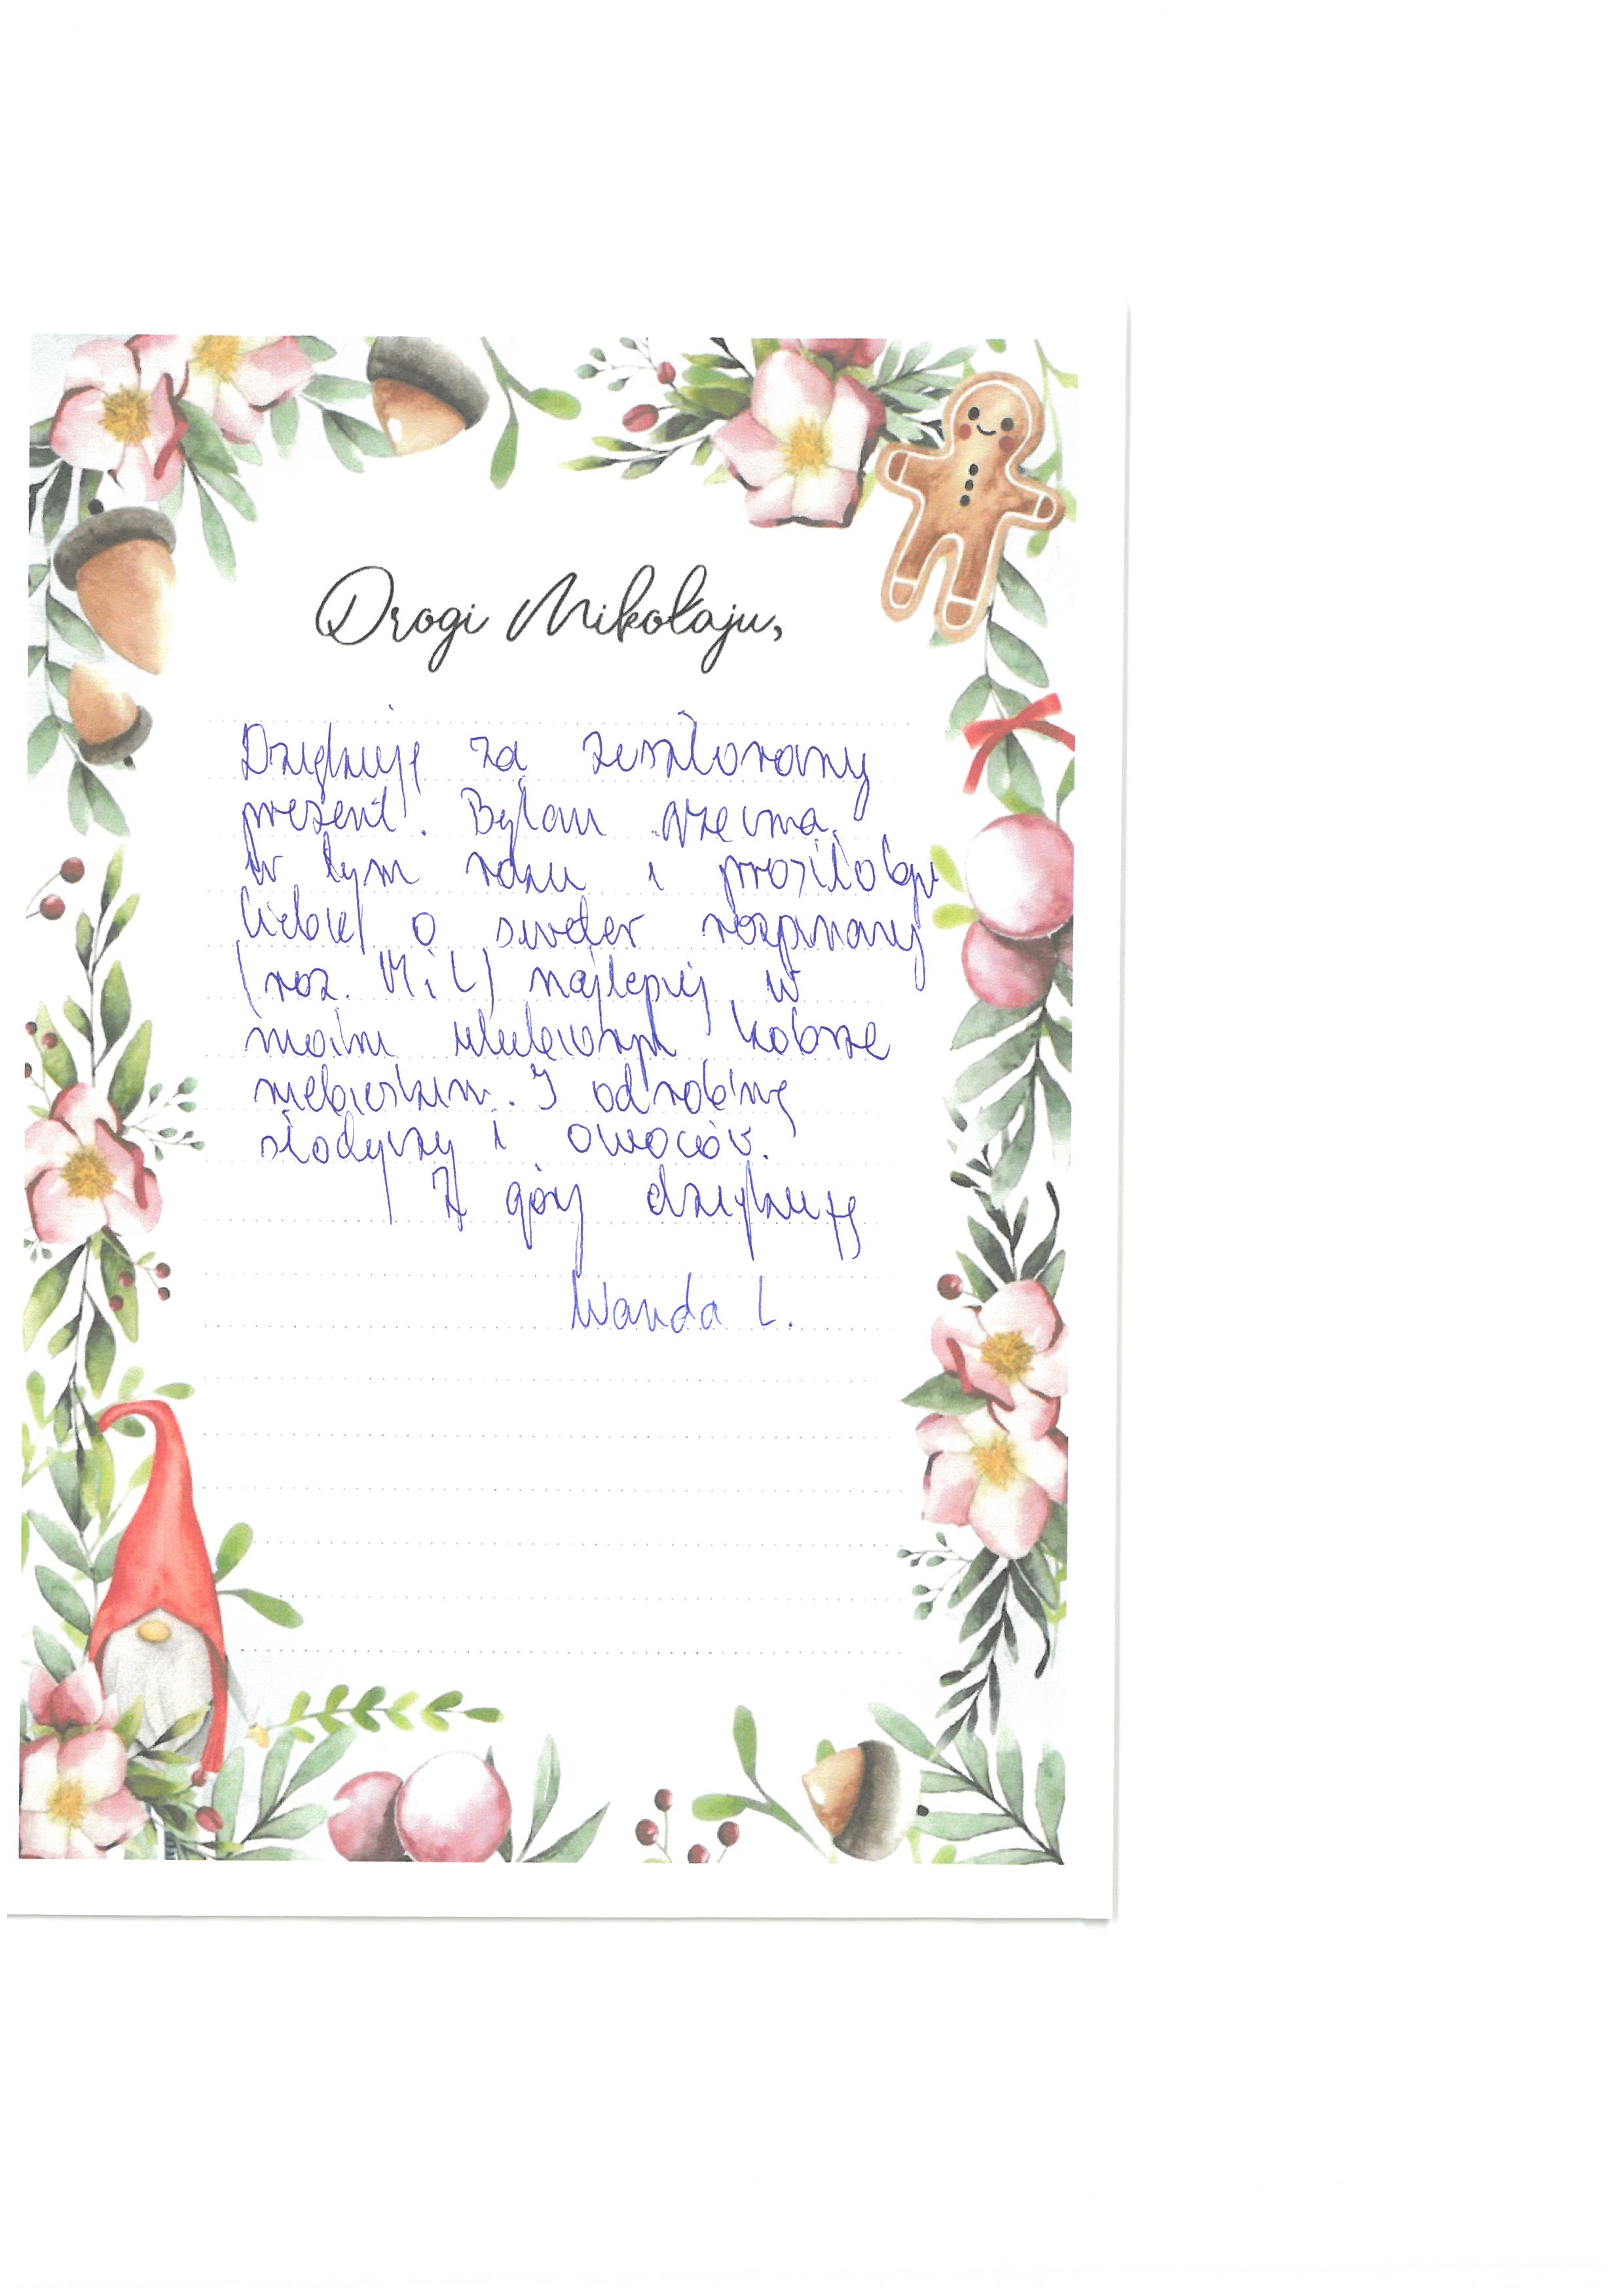 Drogi Mikołaju,
Dziękuję za zeszłoroczny
prezent. Byłam grzeczna
w tym roku i prosiłabym
Ciebie o sweter rozpinany
(roz. M i L) najlepiej w
moim kolorze
niebieskim. I odrobinę
słodyczy i owoców.
Z góry dziękuję
Wanda L.